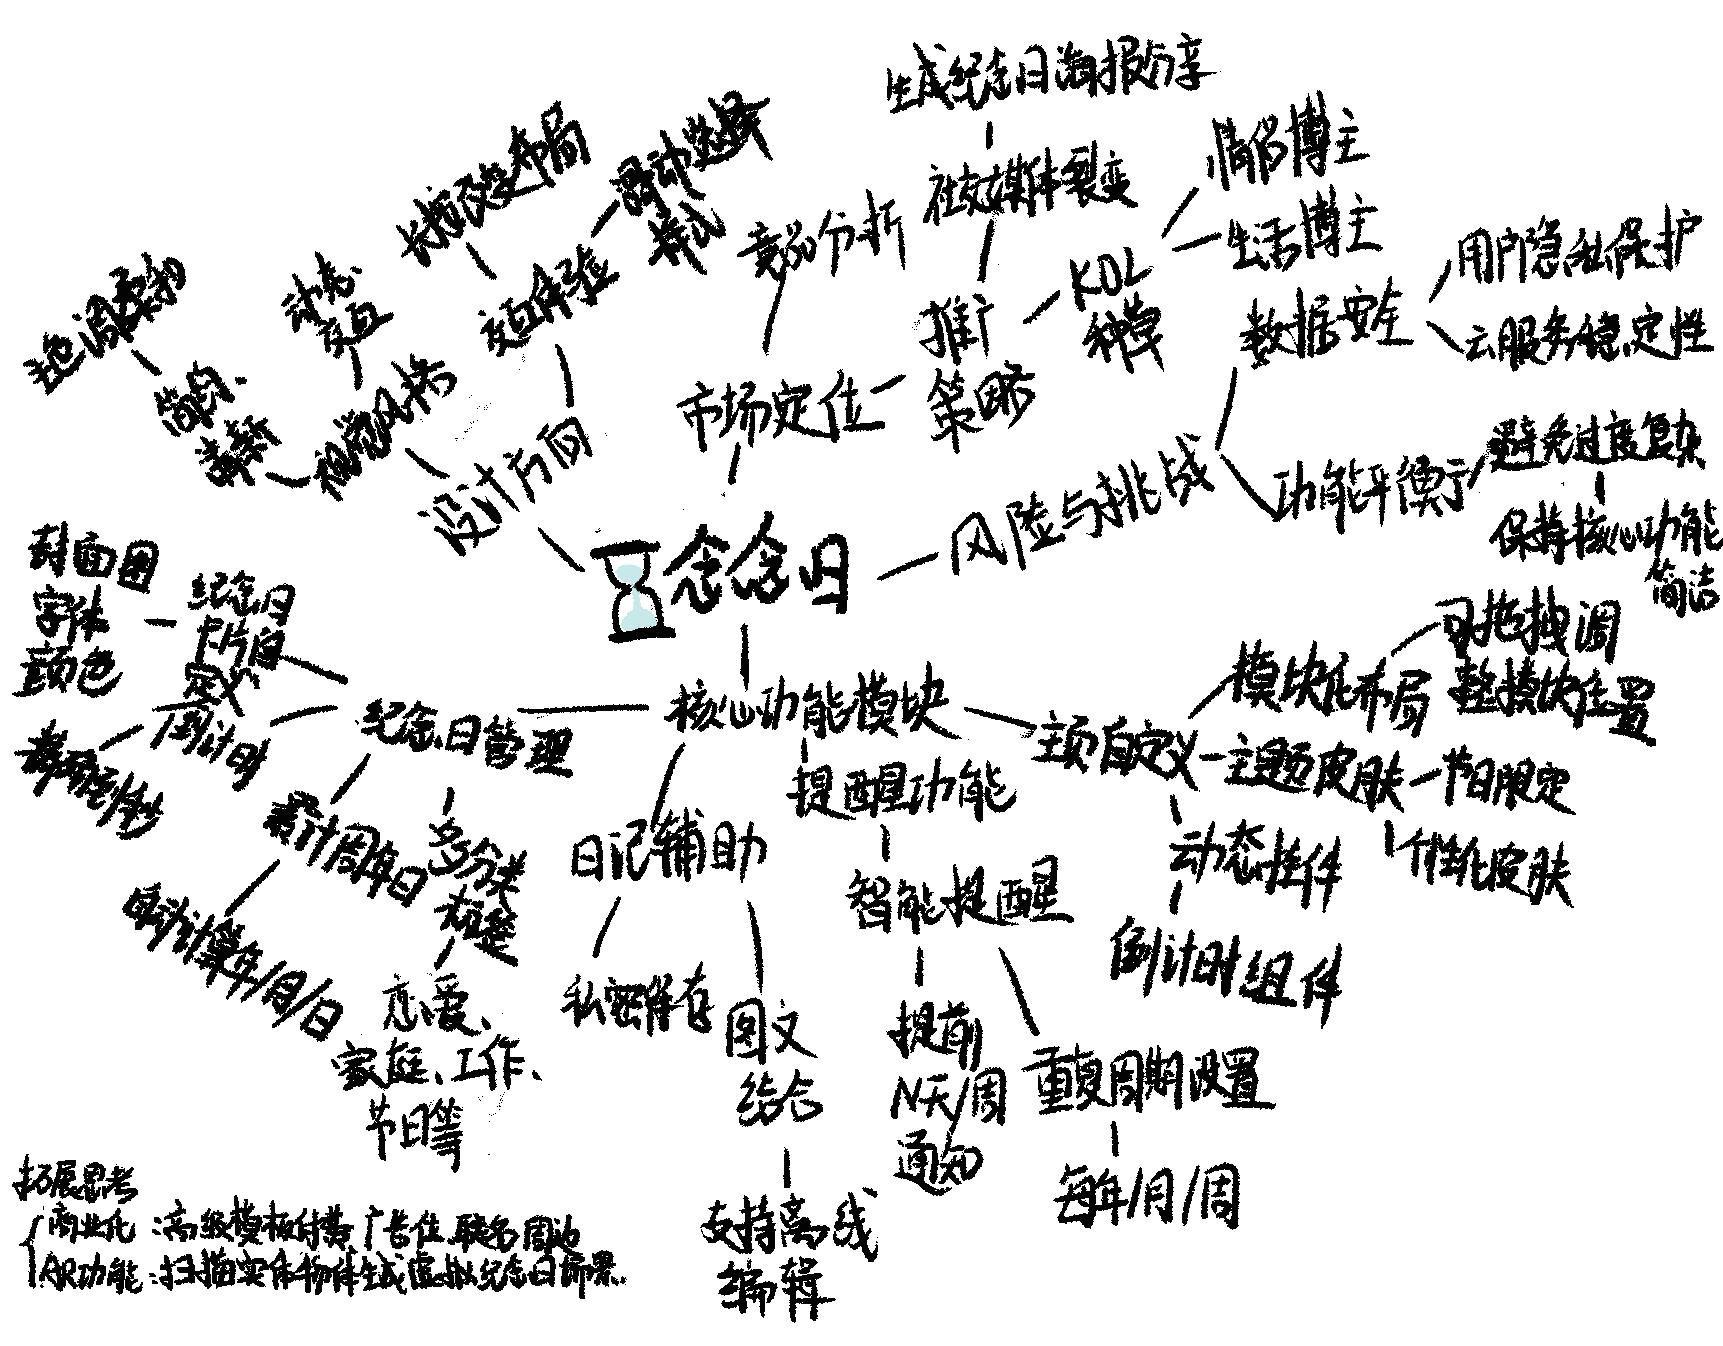 生成纪念日海报分享
社交媒体裂变
情侣博主
生活博主
KOL
种草
推广
策略
竞品分析
市场定位
滑动选择
样式
长按改变布局
交互体验
动态
交互
主色调柔和
简约、
清新
视觉风格
设计方向
数据安全
用户隐私保护
云服务稳定性
风险与挑战
功能平衡
避免过度复杂
保持核心功能
简洁
念念归
封面图
字体
颜色
纪念日
卡片自
定义
倒计时
精确到秒
纪念日管理
累计周年日
自动计算年/月/日
多分类
标签
恋爱、
家庭、工作、
节日等
核心功能模块
日记辅助
私密保存
图文
结合
支持离线
编辑
提醒功能
智能提醒
提前
N天/周
通知
重复周期设置
每年/月/周
主页自定义
模块化布局
可拖拽调
整模块位置
主题皮肤
节日限定
个性化皮肤
动态挂件
倒计时组件
拓展思考
商业化:高级模板付费、广告位、联名周边
AR功能:扫描实体物件生成虚拟纪念日场景.